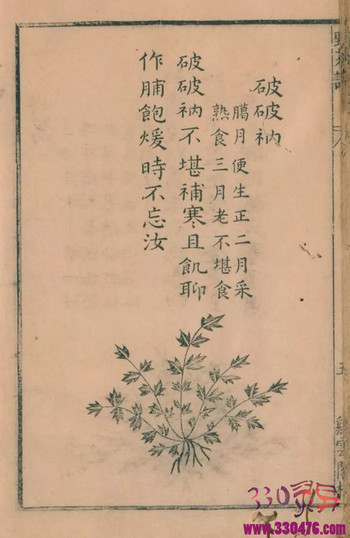 破破衲
臈月便生正二月采
熟食三月老不堪食
破破衲不堪補寒且飢聊
作脯飽煖時不忘汝
330
www.330476.com